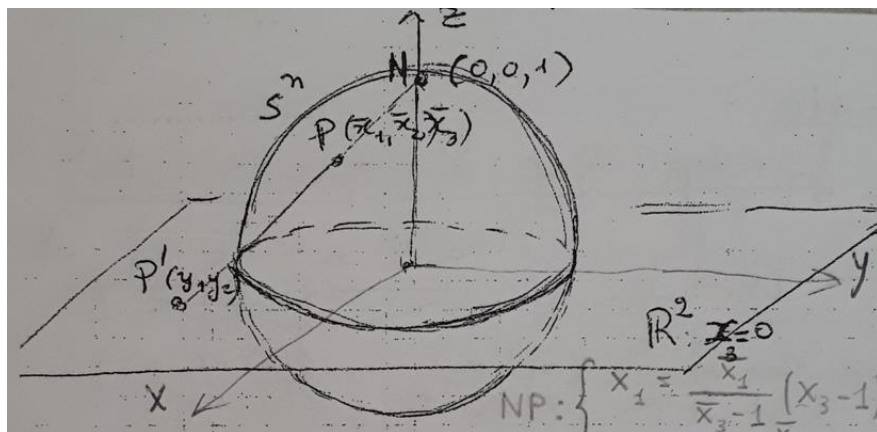 z
N (0,0,1)
Sⁿ
P(x̄₁, x̄₂, x̄₃)
P'(y₁, y₂)
y
ℝ² x₃=0
x
NP: { x₁ = x̄₁/(x̄₃-1) (x₃-1)